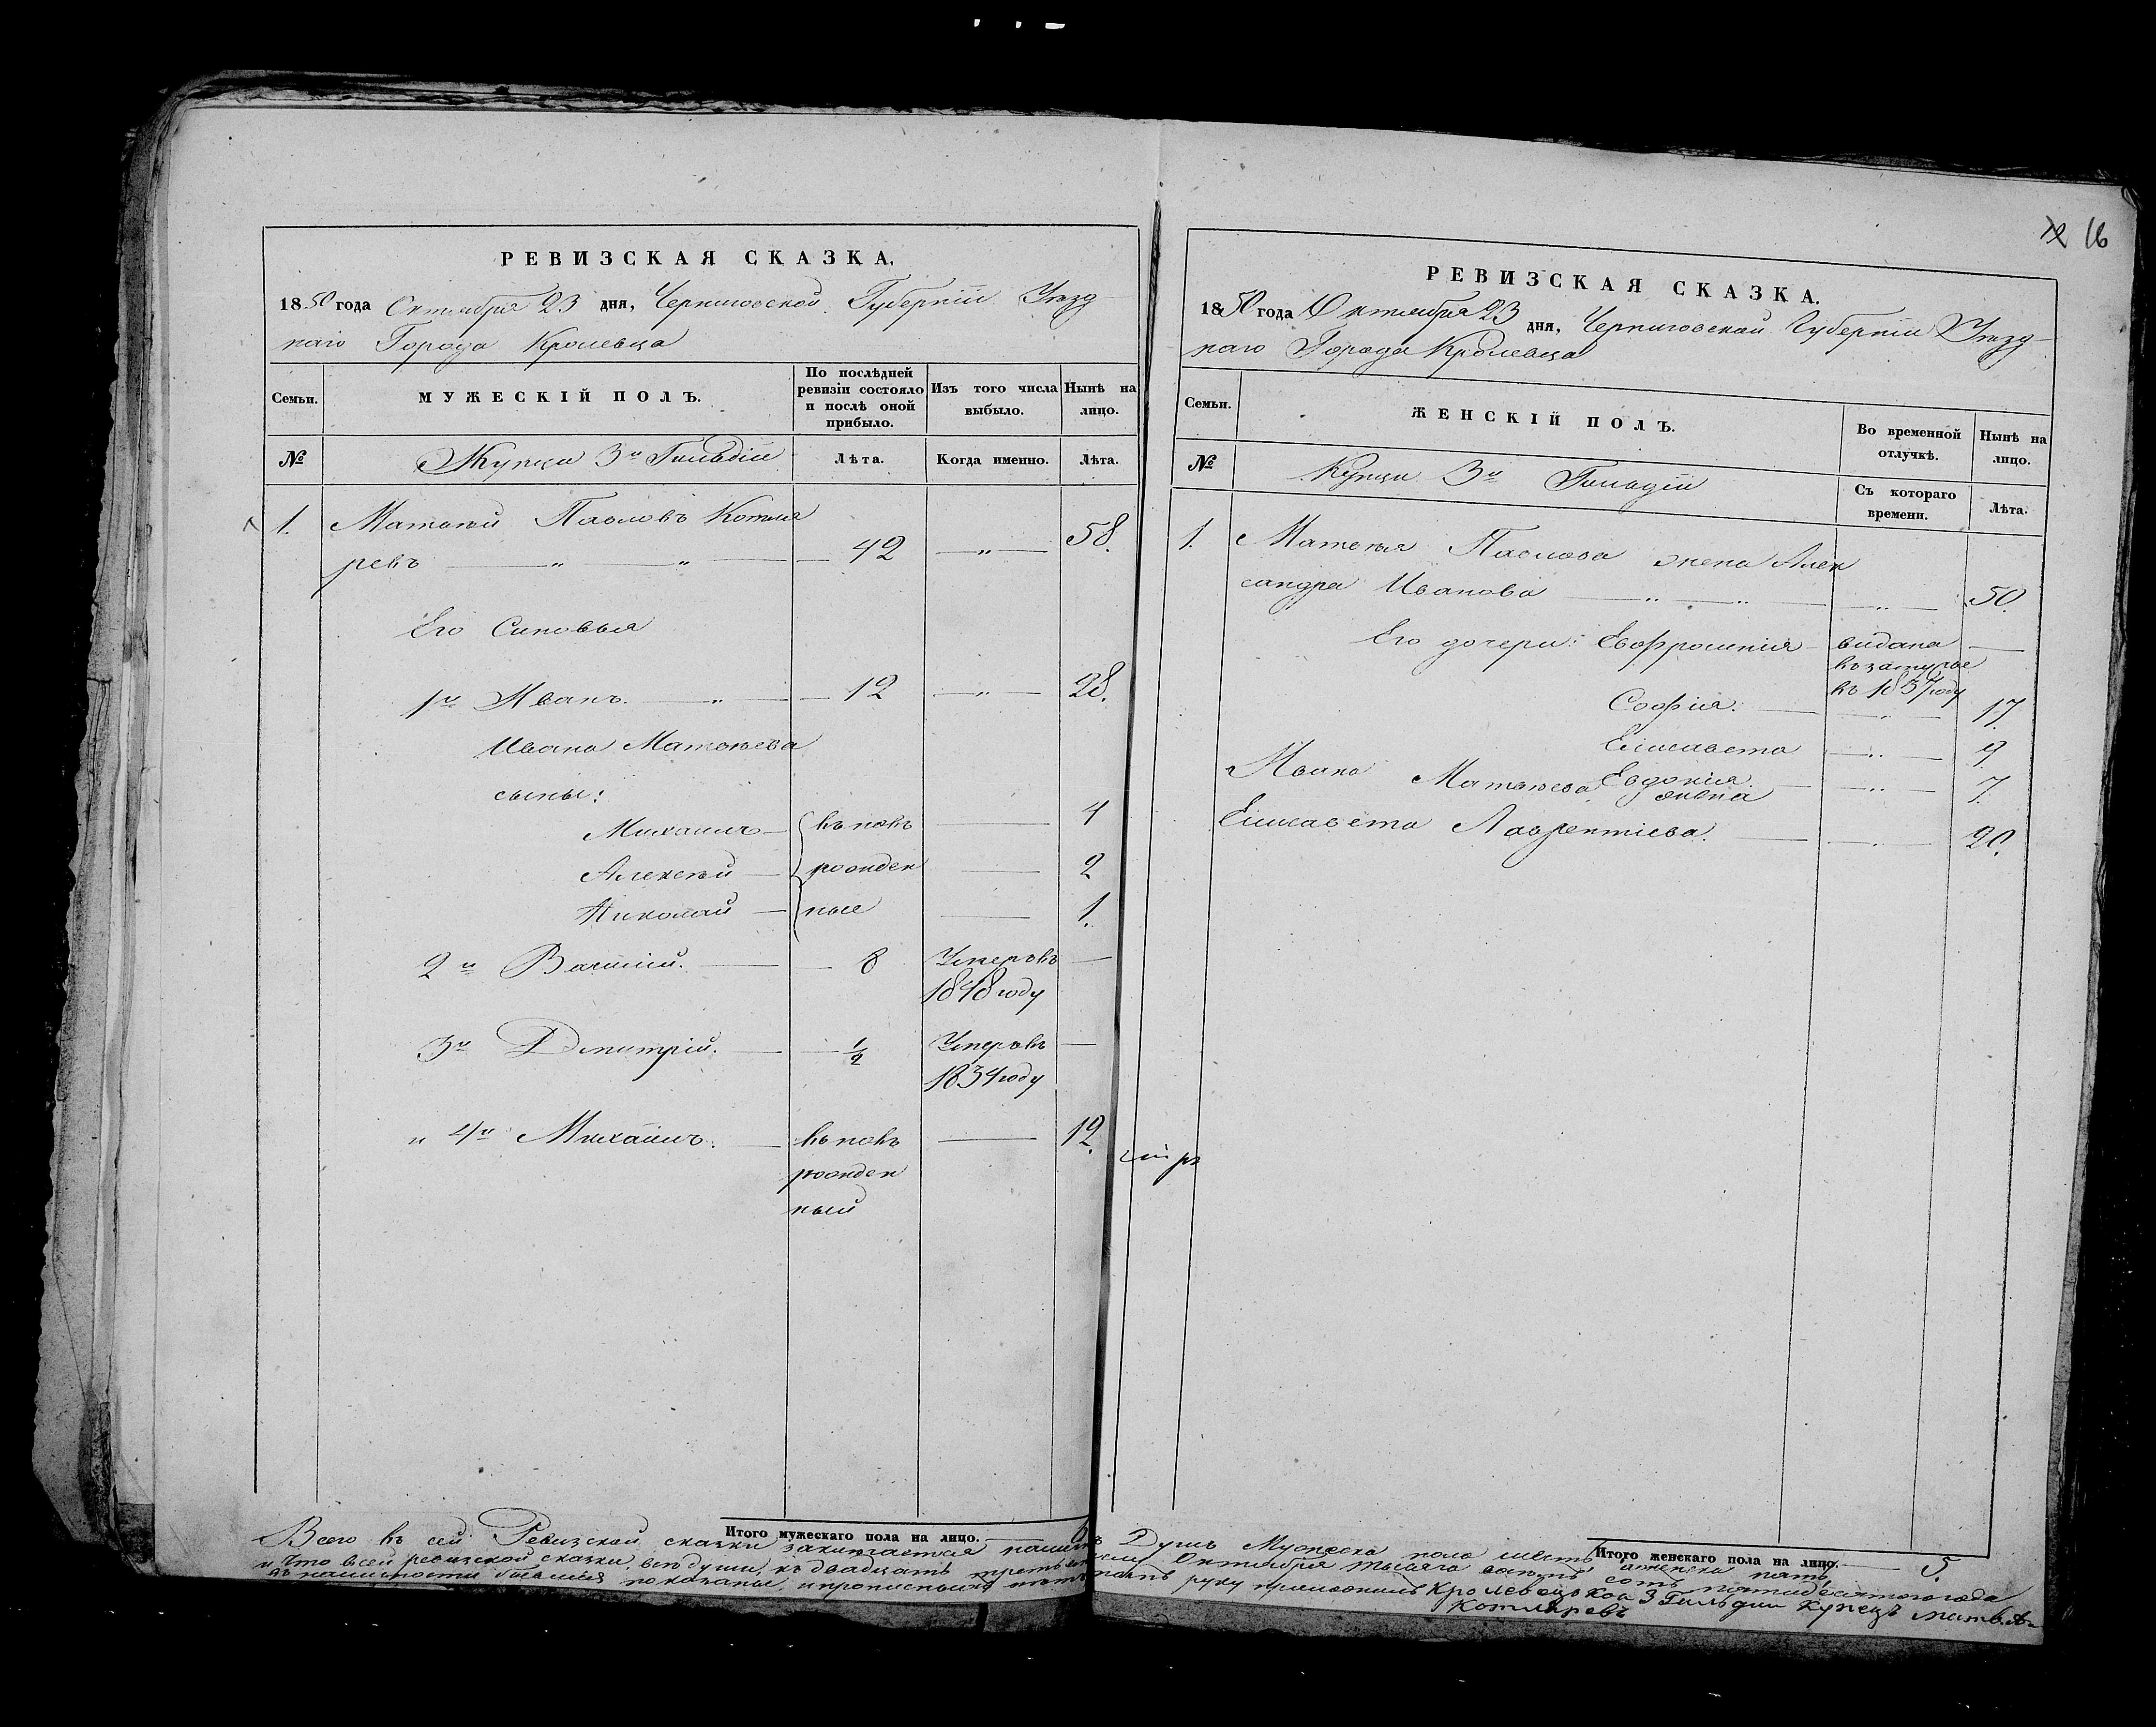 16
РЕВИЗСКАЯ СКАЗКА.
1850 года Октября 23 дня, Черниговской Губерніи Уезд
наго Города Кролевца
Семьи.
МУЖЕСКІЙ ПОЛЪ.
По послѣдней ревизіи состояло и послѣ оной прибыло.
Изъ того числа выбыло.
Нынѣ на лицо.
№
Купцы 3й Гильдіи
Лѣта.
Когда именно.
Лѣта.
1. Матвей Павловъ Котля
ревъ — „ — „ — 42 — „ — 58.
Его Синовья
1й Иванъ. — „ — 12 — „ — 28.
Ивана Матвеева
сыны:
Михаилъ — въ новъ — 4
Алексей — рожден — 2
Николай — ные — 1.
2й Василій. — 8 Умеръ въ —
1848 году
3й Дмитрій. — 1/2 Умеръ въ —
1834 году
„ 4й Михаилъ. — въ новъ — 12.
рожден
ный
Итого мужескаго пола на лицо. — 6
РЕВИЗСКАЯ СКАЗКА.
1850 года Октября 23 дня, Черниговской Губерніи Уезд-
наго Города Кролевца
Семьи.
ЖЕНСКІЙ ПОЛЪ.
Во временной отлучкѣ.
Нынѣ на лицо.
№
Купцы 3й Гильдіи
Съ котораго времени.
Лѣта.
1. Матвея Павлова жена Алек
сандра Иванова — „ — „ — „ — 50.
Его дочери: Евфросинія — видана —
въ замужье
въ 1837 году
Софія. — „ — 17.
Елисавета — „ — 9
Евдокія — „ — 7.
Ивана Матвеева жена
Елисавета Лаврентіева. — „ — 20.
Итого женскаго пола на лицо. — 5.
Всего въ сей Ревизской сказки заключается налицо Душъ Мужеска пола шесть аженска пять,
и что всей ревизской сказки, все души, къ двадцать третьему числу Октября тысяча восемь сотъ пятидесятого года
въ наличности бывшія показаны, и прописныхъ нетъ руку приложилъ Кролевецъкой 3 Гильдии Купецъ матвей
Котляревъ